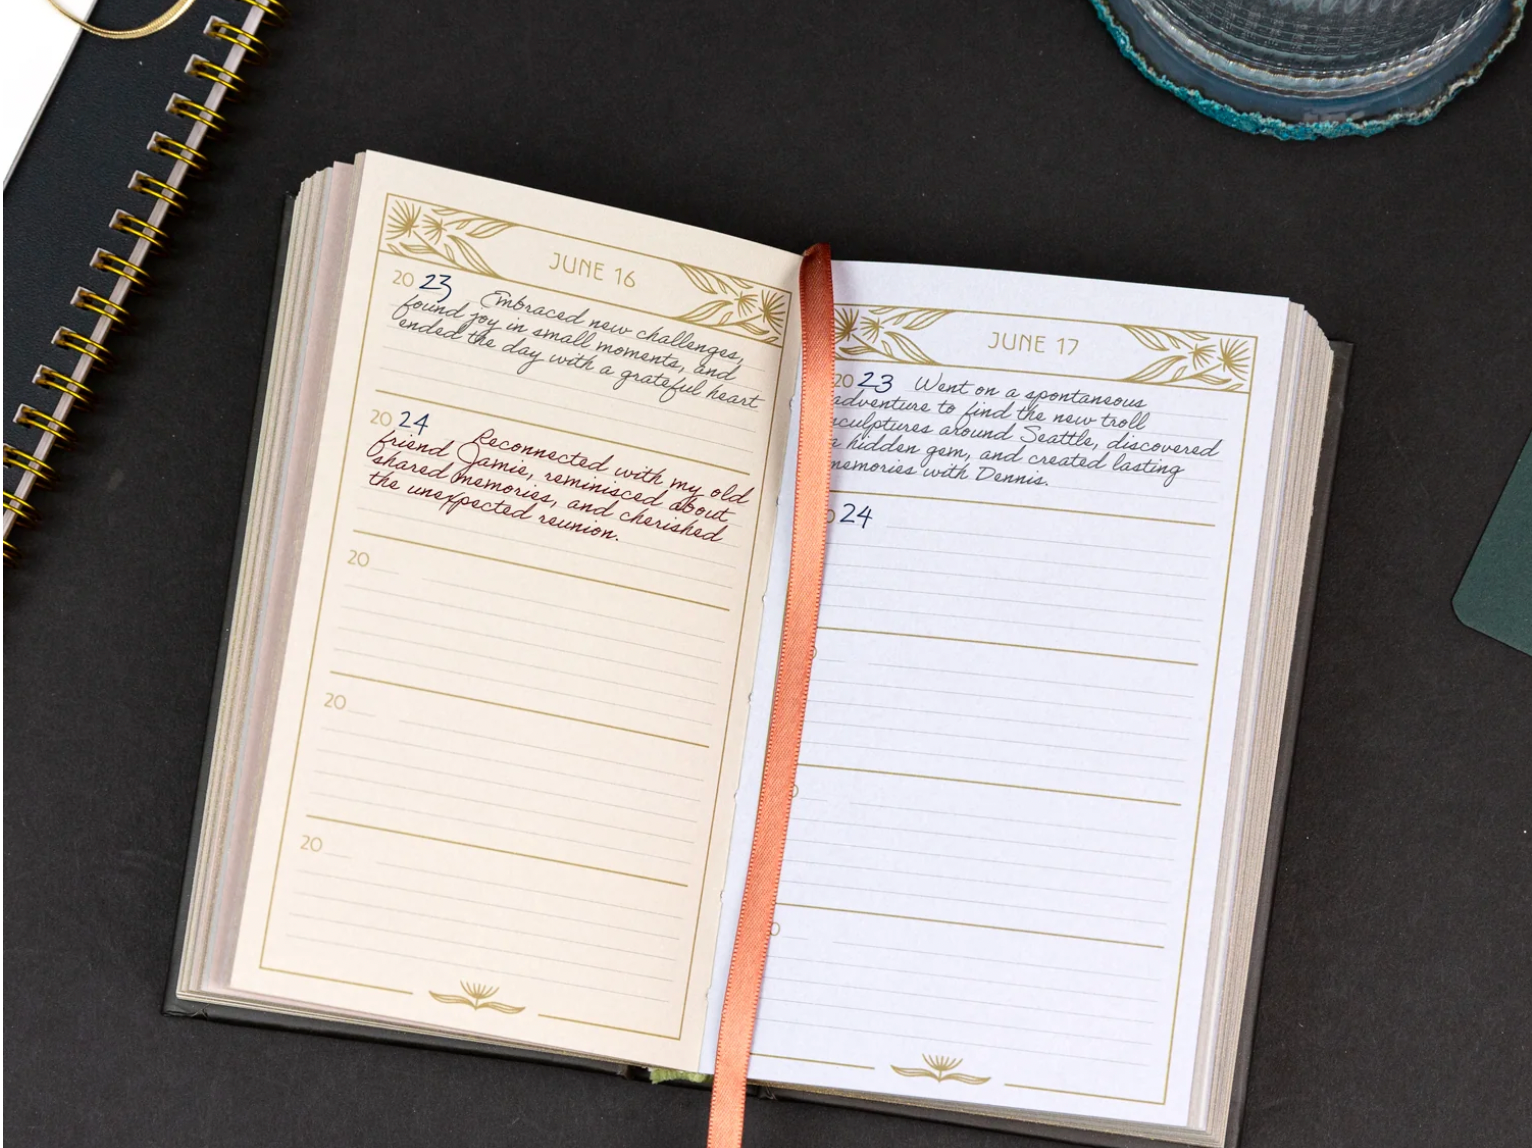 JUNE 16
20 23 Embraced new challenges,
found joy in small moments, and
ended the day with a grateful heart
20 24 Reconnected with my old
friend Jamie, reminisced about
shared memories, and cherished
the unexpected reunion.
20
20
20
JUNE 17
20 23 Went on a spontaneous
adventure to find the new troll
sculptures around Seattle, discovered
a hidden gem, and created lasting
memories with Dennis.
0 24
0
0
0